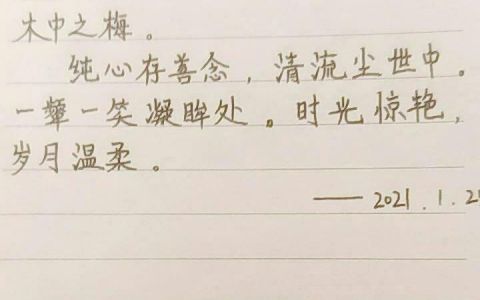 木中之梅。
纯心存善念，清流尘世中。
一颦一笑凝眸处。时光惊艳，
岁月温柔。
——2021.1.2